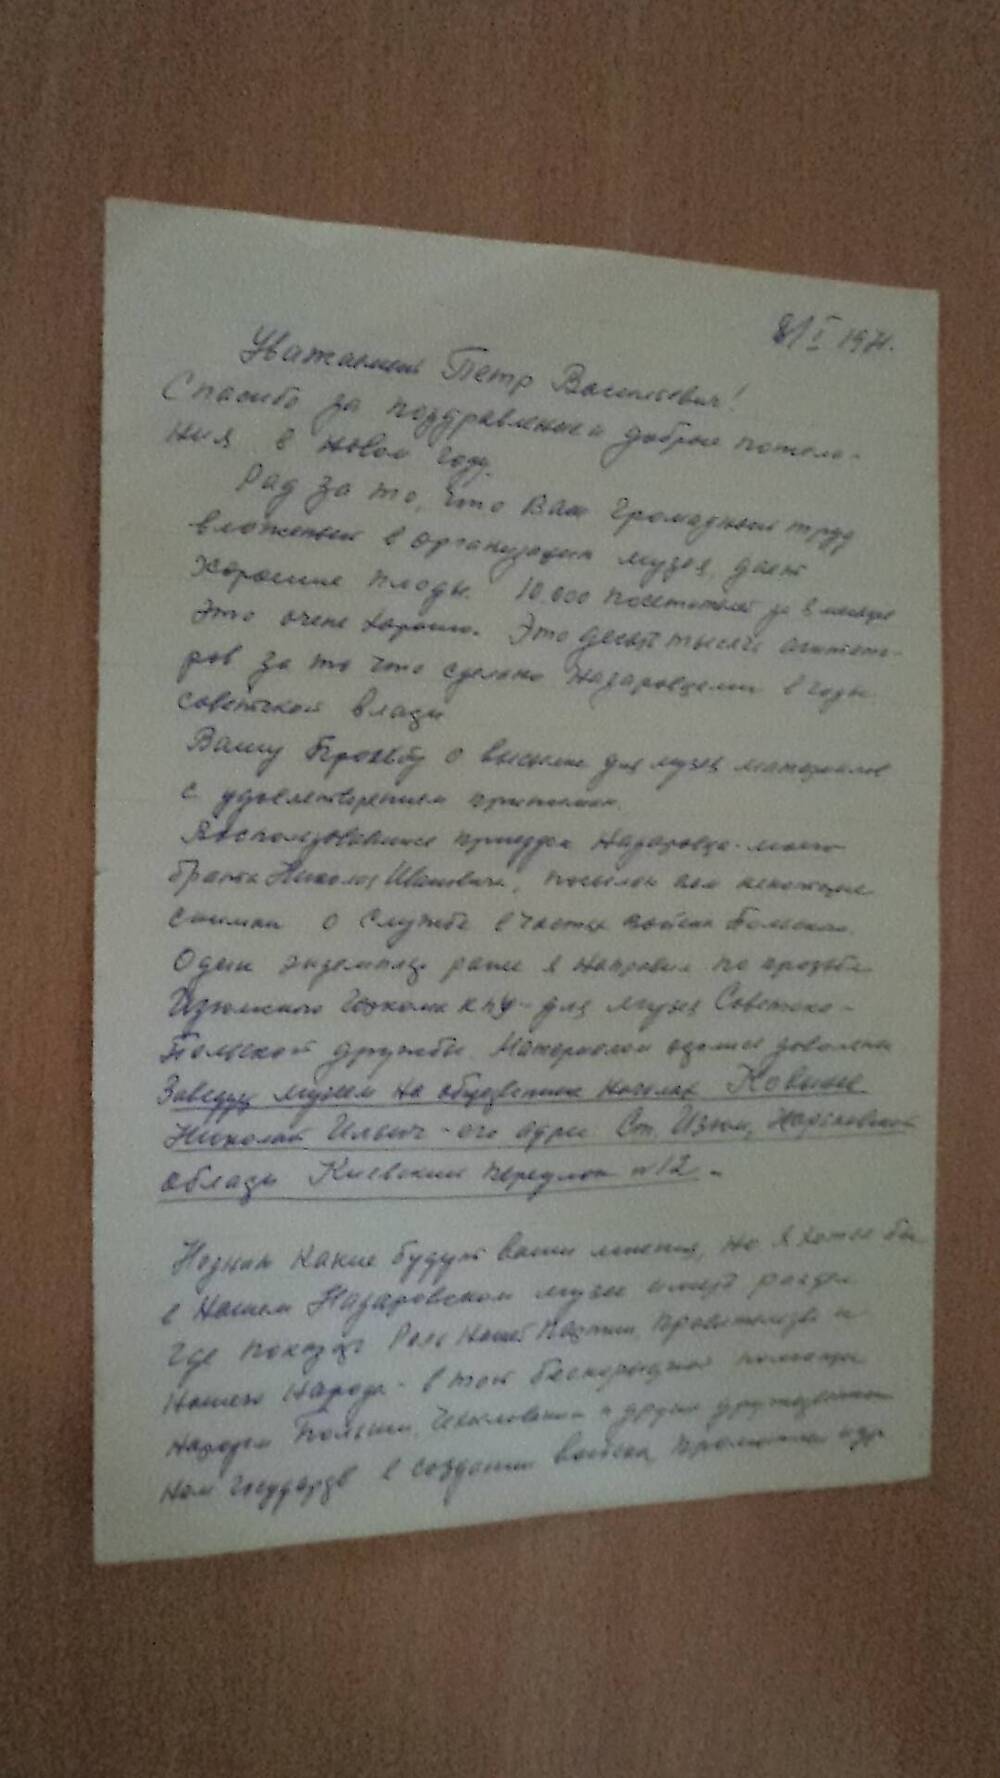 8/I 1971.
Уважаемый Петр Васильевич!
Спасибо за поздравление и добрые пожела-
ния в новом году.
Рад за то, что Ваш громадный труд
вложенный в организацию музея, дает
хорошие плоды. 10.000 посетителей за 8 месяцев
это очень хорошо. Это десять тысяч агитато-
ров за то что сделано Назаровцами в годы
советской власти
Вашу просьбу о высылке для музея материалов
с удовлетворением принимаю.
Воспользовавшись приездом Назаровца - моего
брата Николая Ивановича, посылаю вам некоторые
снимки о службе в частях войска Польского.
Один экземпляр ранее я направил по просьбе
Изюмского Горкома КПУ - для музея Советско-
Польской дружбы. Материалом остались довольны
Заведует музеем на общественных началах
Николай Ильич - его адрес Ст. Изюм, Харьковской
область Киевский переулок №12.
Незнаю какие будут ваши мнения, но я хотел бы
в Нашем Назаровском музее иметь раздел
где показать Роль Нашей Партии, Правительства и
Нашего Народа - в той бескорыстной помощи
народам Польши, Чехословакии и других дружественных
нам государств в создании войска, промышлен